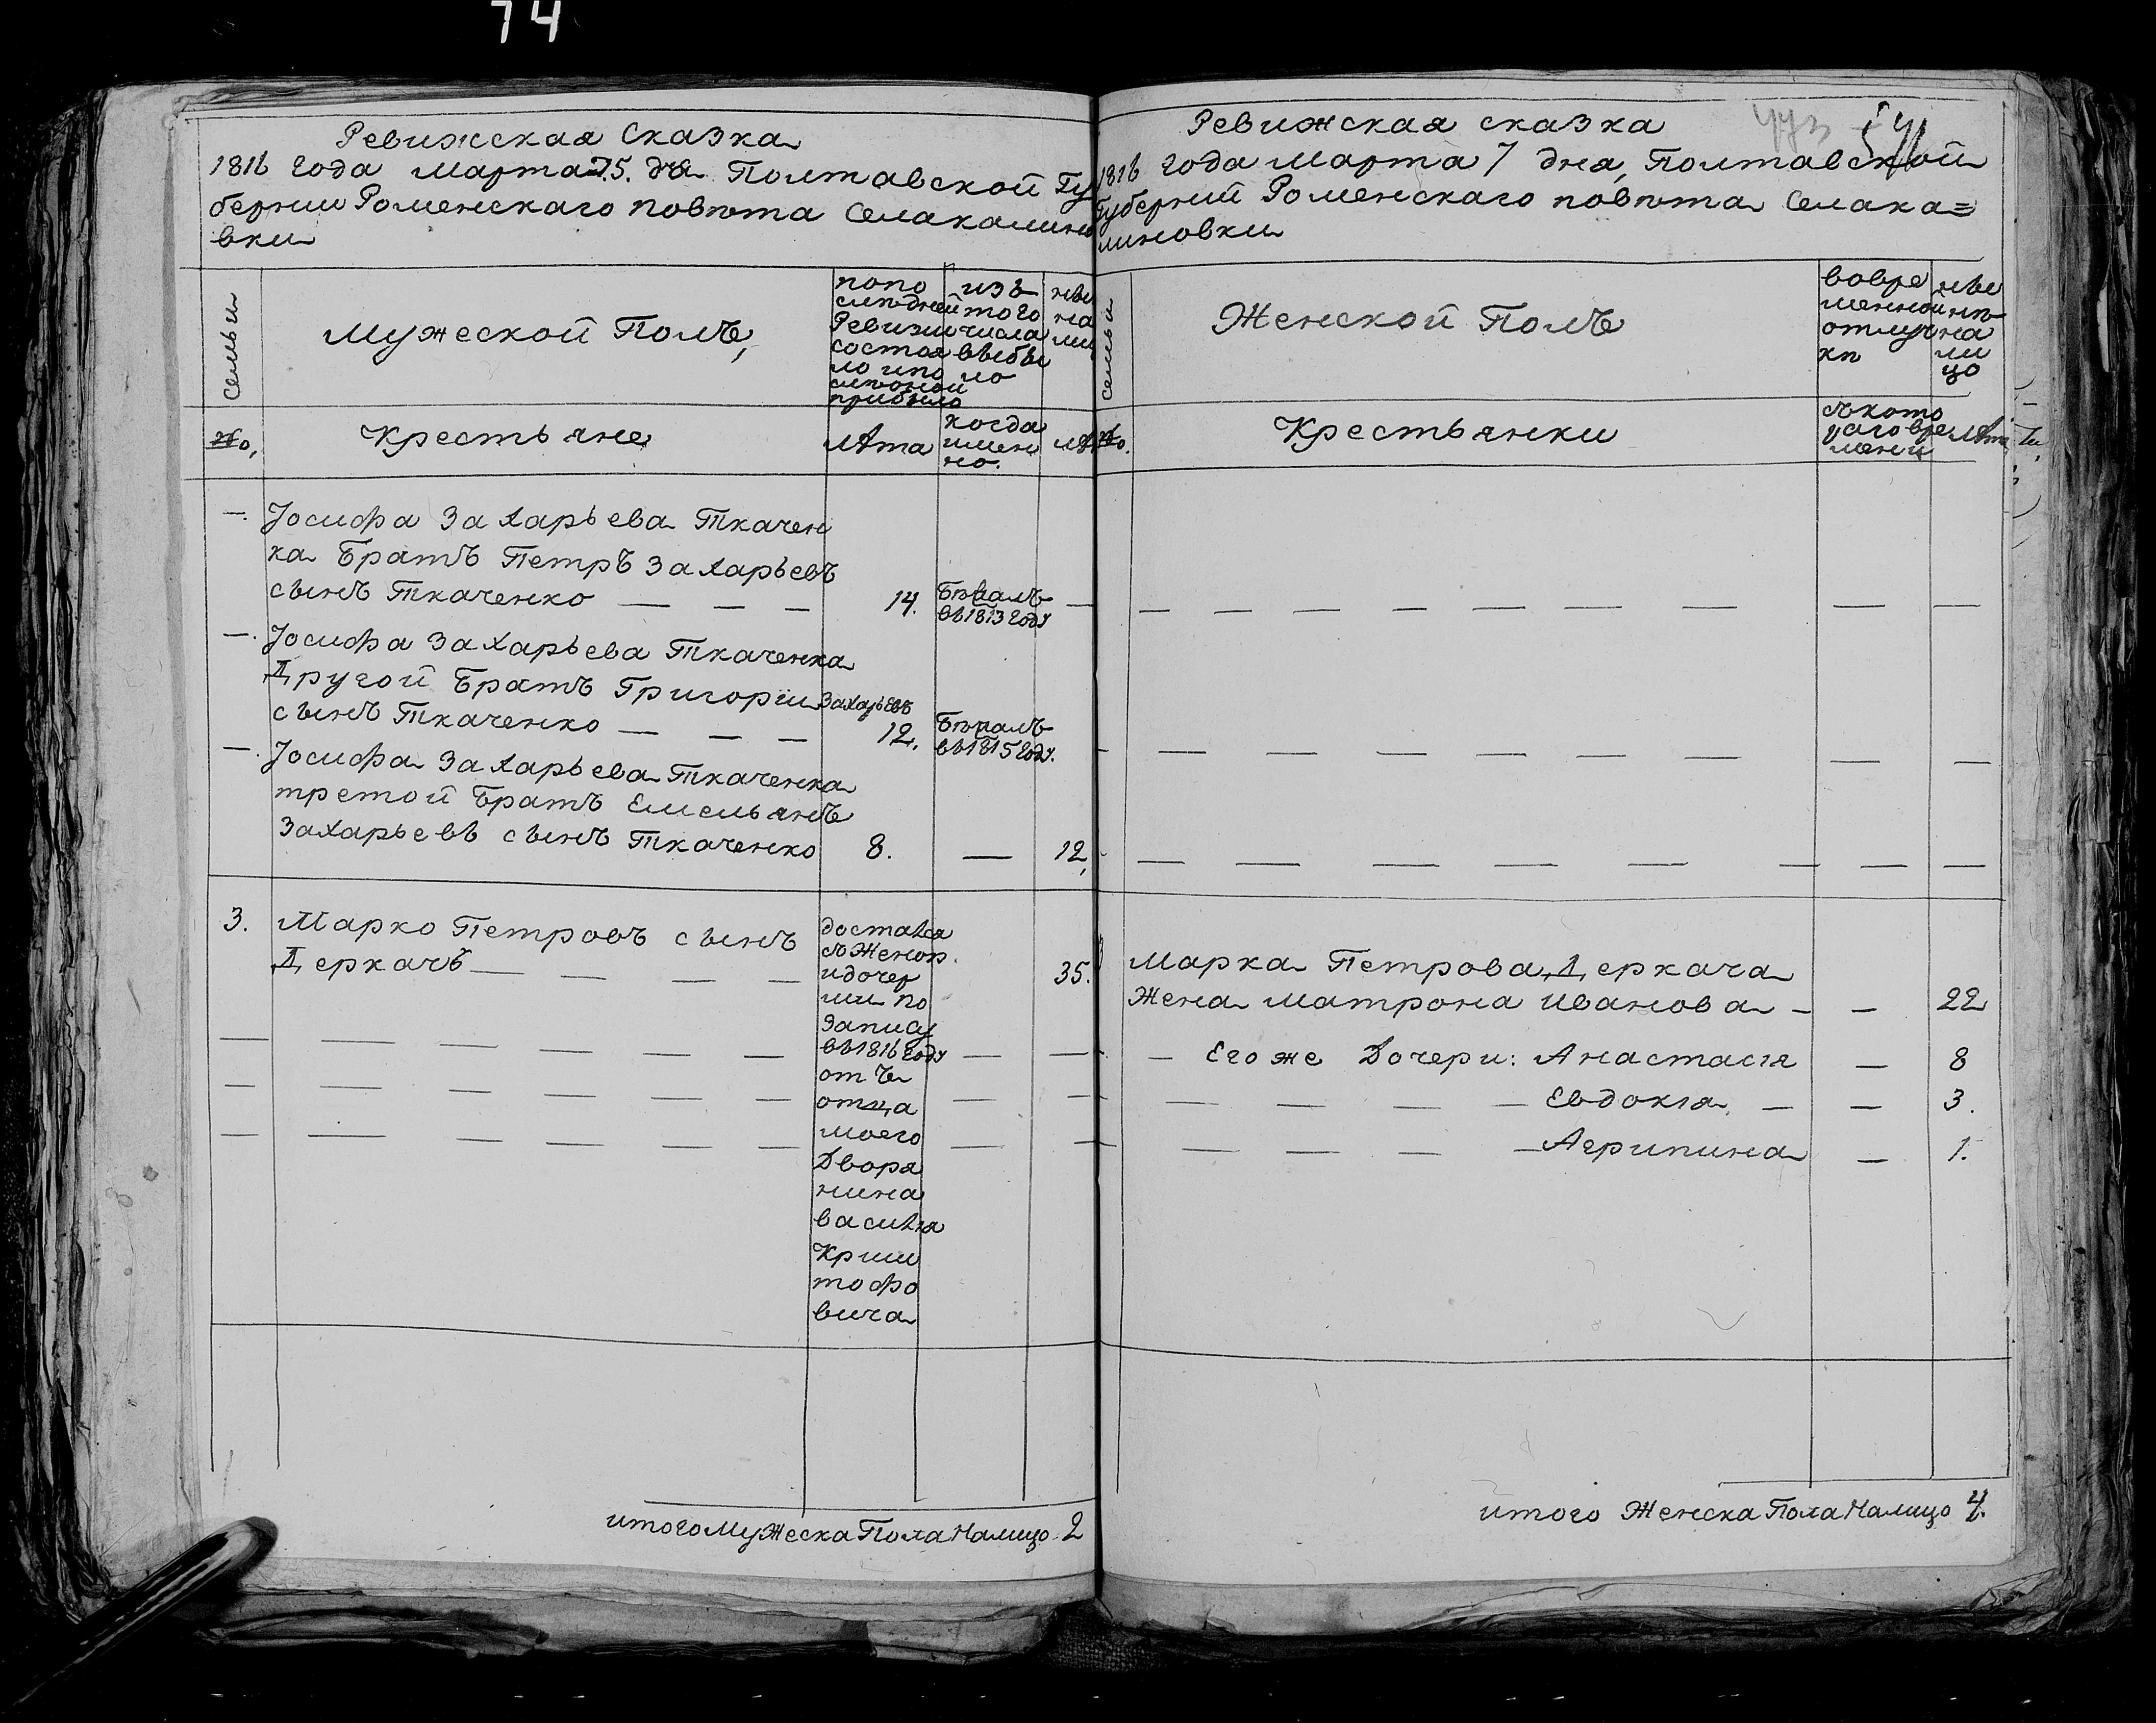 74
Ревижская Сказка
1816 года Марта 75. дня Полтавской Гу
бернии Роменскаго повѣта Села калино
вки
Семьи
Мужеской Полъ,
попо
слѣдней
Ревизи
состоя
ло ипо
слѣоной
прибыло
изъ
того
числа
выбы
ло
ныне
на
ли
№о,
Крестьяне
лѣта
когда
имен
но.
лѣ
—. Іосифа Захарьева Ткачен
ка Братъ Петръ Захарьевъ
сынъ Ткаченко — — — 14. Бѣжалъ —
въ 1813 году
—. Іосифа Захарьева Ткаченка
Другой Братъ Григории Захарьевъ
сынъ Ткаченко — — — 12. Бѣжалъ
въ 1815 году.
—. Іосифа Захарьева Ткаченка
третой Братъ Емельянъ
Захарьевъ сынъ Ткаченко 8. — 12,
3. Марко Петровъ сынъ
Деркачъ — — — — 35.
достался
съ Женою
идочер
ми по
Записи
въ 1816 году
отъ
отца
моего
Дворя
нина
василия
Криш
тофо
вича
итого Мужеска Пола Налицо 2
Ревижская сказка
1816 года Марта 7 дня, Полтавской
Губернии Роменскаго повѣта Села ка=
линовки
Семьи
Женской Полъ
вовре
менной
отлуч
кѣ
ныне
на
ли
цо
№о.
Крестьянки
съкото
раго вре
мени
лѣта
Марка Петрова Деркача
Жена Матрона Иванова — — 22
— Его же Дочери: Анастасія — 8
— — — — Евдокія — — 3.
— — — — Агрипина — 1.
итого Женска Пола Налицо 4.